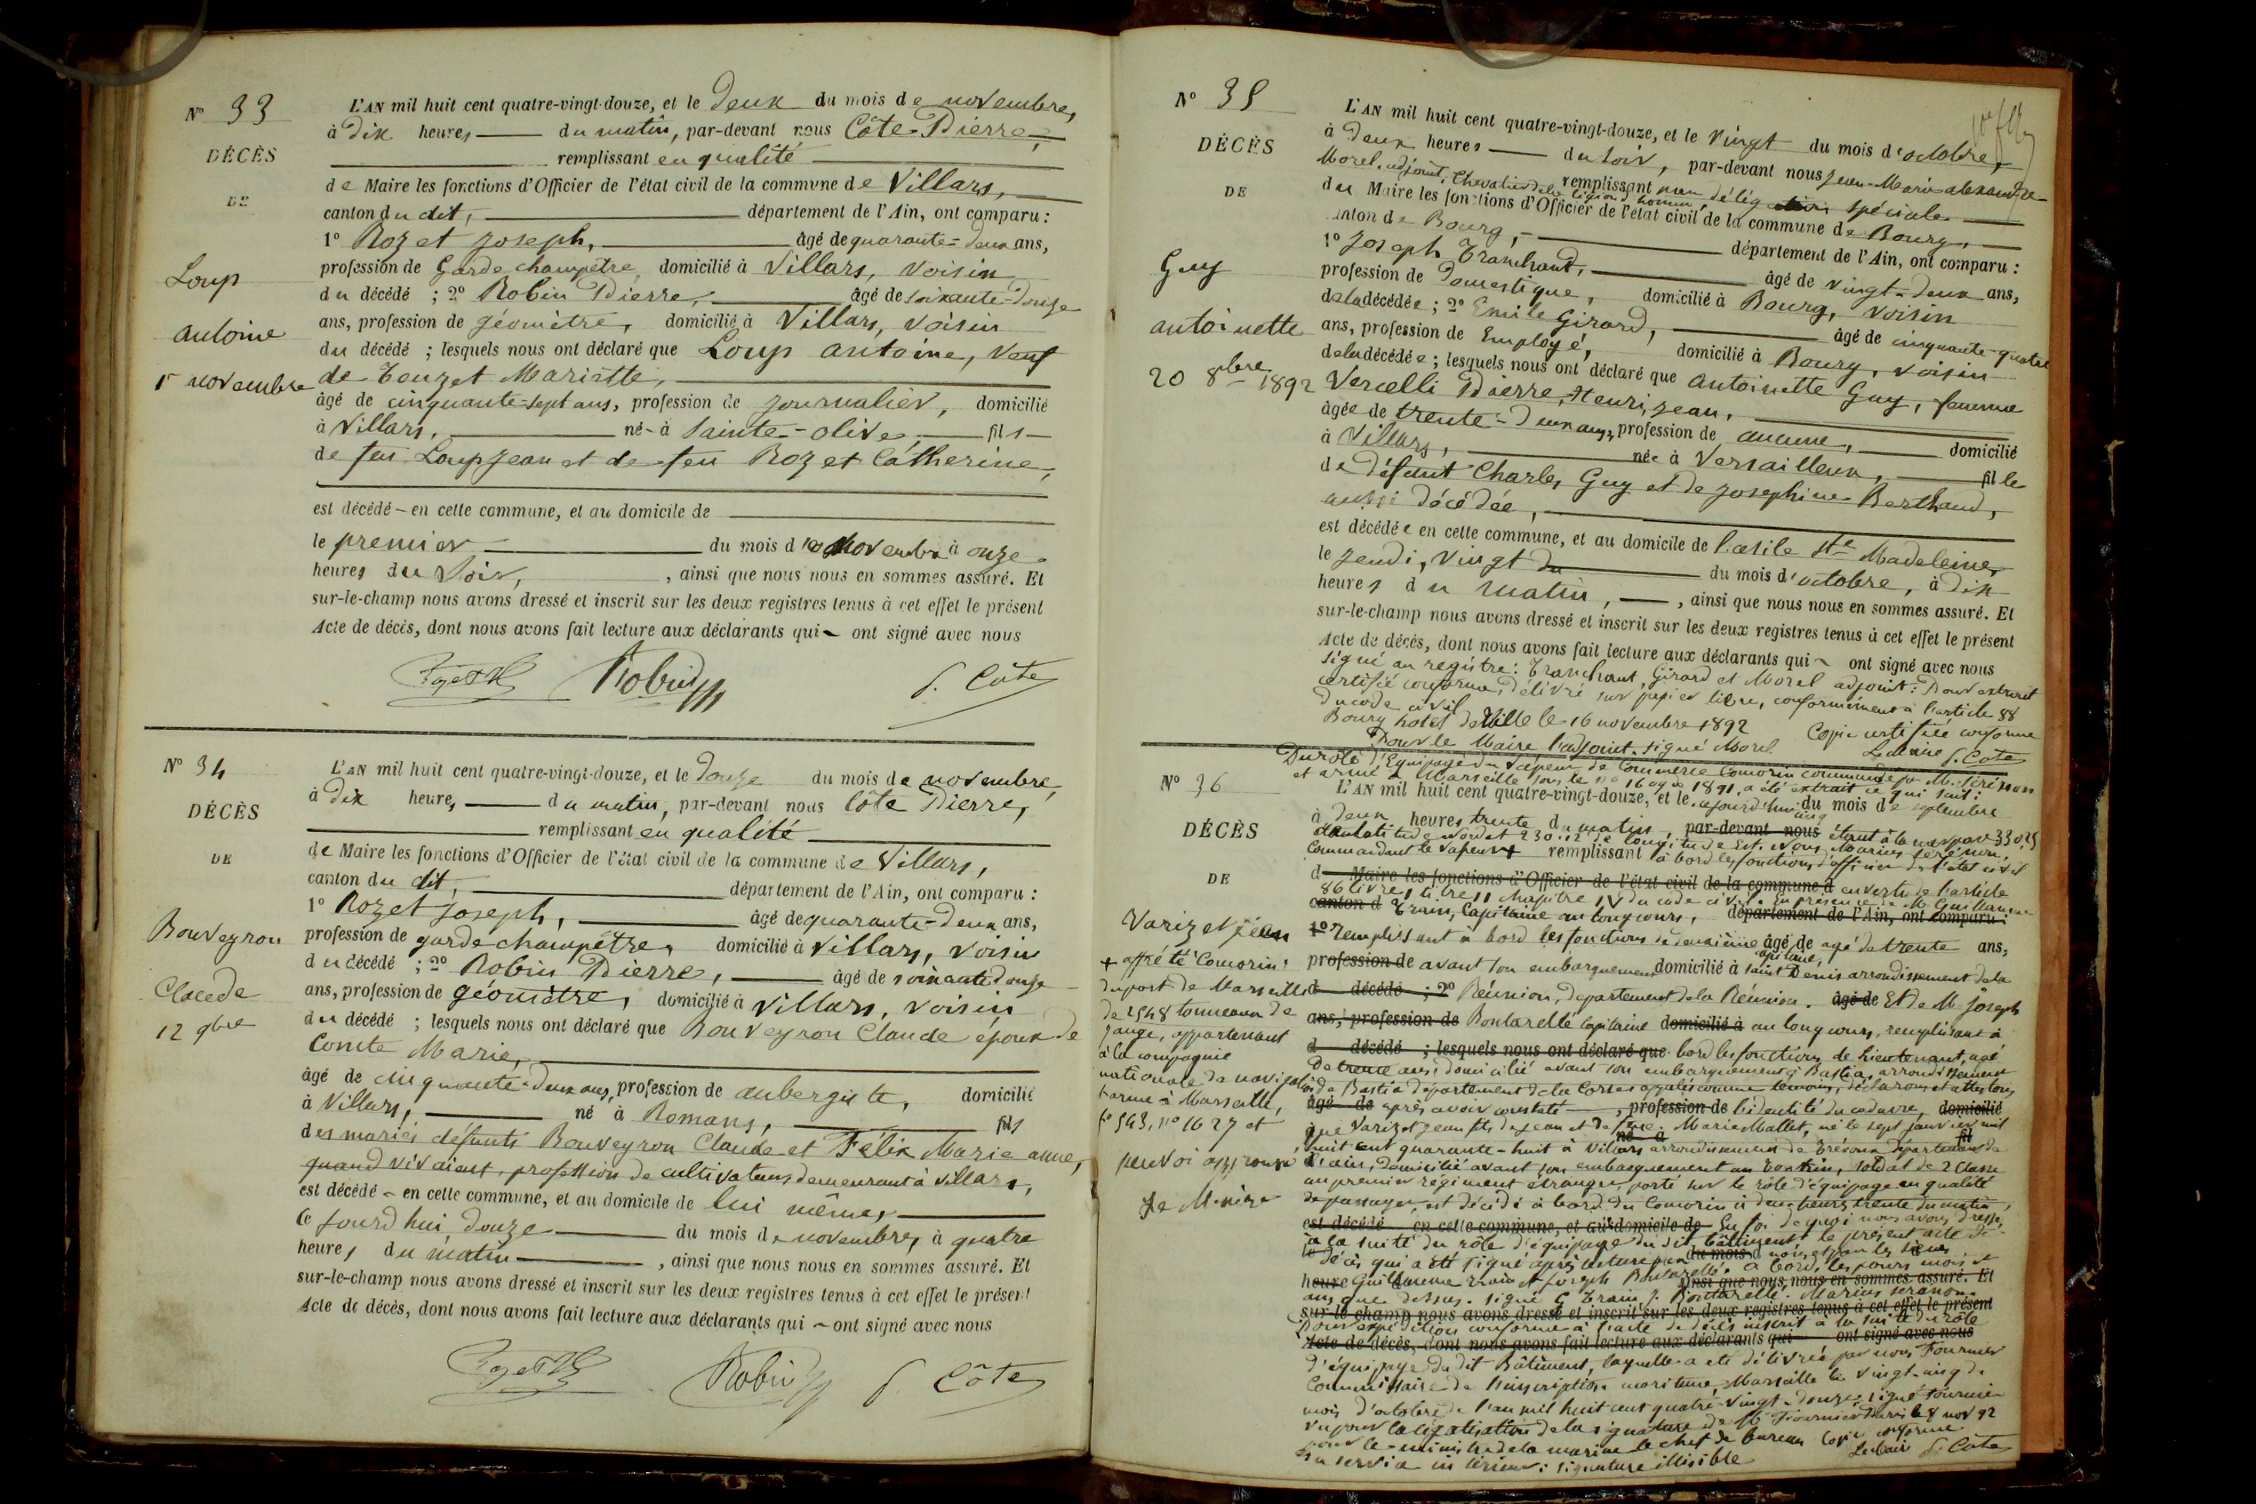 N° 33
DÉCÈS
DE
Loup
antoine
1er novembre
L'AN mil huit cent quatre-vingt-douze, et le deux du mois de novembre,
à dix heures du matin, par-devant nous Côte Pierre,
remplissant en qualité
de Maire les fonctions d'Officier de l'état civil de la commune de Villars,
canton du dit, département de l'Ain, ont comparu :
1° Rozet Joseph, âgé de quarante-deux ans,
profession de Garde champêtre, domicilié à Villars, voisin
du décédé ; 2° Robin Pierre, âgé de soixante-douze
ans, profession de géomètre, domicilié à Villars, voisin
du décédé ; lesquels nous ont déclaré que Loup antoine, veuf
de Touzet Mariette,
âgé de cinquante-sept ans, profession de journalier, domicilié
à Villars, né à Sainte-olive fils
de feu Loup Jean et de feu Rozet Cátherine,
est décédé en cette commune, et au domicile de
le premier du mois de Novembre à onze
heures du soir, , ainsi que nous nous en sommes assuré. Et
sur-le-champ nous avons dressé et inscrit sur les deux registres tenus à cet effet le présent
Acte de décès, dont nous avons fait lecture aux déclarants qui ont signé avec nous
Robin P. Côte
N° 34
DÉCÈS
DE
Bouveyron
Claude
12 9bre
L'AN mil huit cent quatre-vingt-douze, et le douze du mois de novembre,
à dix heures du matin, par-devant nous Côte Pierre,
remplissant en qualité
de Maire les fonctions d'Officier de l'état civil de la commune de Villars,
canton du dit, département de l'Ain, ont comparu :
1° Rozet Joseph, âgé de quarante-deux ans,
profession de garde champêtre, domicilié à Villars, voisin
du décédé ; 2° Robin Pierre, âgé de soixante douze
ans, profession de géomètre, domicilié à Villars, voisin
du décédé ; lesquels nous ont déclaré que Bouveyron Claude époux de
Comte Marie,
âgé de cinquante-deux ans, profession de aubergiste, domicilié
à Villars, né à Romans, fils
des mariés défunts Bouveyron Claude et Félix Marie anne,
quand vivaient, profession de cultivateurs demeurant à villars,
est décédé en cette commune, et au domicile de lui même,
ce jourd'hui douze du mois de novembre, à quatre
heures du matin , ainsi que nous nous en sommes assuré. Et
sur-le-champ nous avons dressé et inscrit sur les deux registres tenus à cet effet le présent
Acte de décès, dont nous avons fait lecture aux déclarants qui ont signé avec nous
Robin P. Côte
N° 35
DÉCÈS
DE
Guy
antoinette
20 8bre 1892
L'AN mil huit cent quatre-vingt-douze, et le vingt du mois d'octobre,
à deux heures du soir, par-devant nous Jean-Marie-alexandre
Morel, adjoint, Chevalier de la légion d'honneur, remplissant par délégation spéciale
du Maire les fonctions d'Officier de l'état civil de la commune de Bourg,
canton de Bourg, département de l'Ain, ont comparu :
1° Joseph Tranchand, âgé de vingt-deux ans,
profession de Domestique, domicilié à Bourg, voisin
de la décédée ; 2° Emile Girard, âgé de cinquante-quatre
ans, profession de Employé, domicilié à Bourg, voisin
de la décédée ; lesquels nous ont déclaré que antoinette Guy, femme
Vercelli Pierre, Henri, Jean,
âgée de trente-deux ans, profession de aucune, domicilié
à Villars, née à Versailleux, fille
de défunt Charles Guy et de Josephine Berthaud,
aussi décédée,
est décédée en cette commune, et au domicile de l'asile Ste Madeleine,
le jeudi, vingt du mois d'octobre, à dix
heures du matin, , ainsi que nous nous en sommes assuré. Et
sur-le-champ nous avons dressé et inscrit sur les deux registres tenus à cet effet le présent
Acte de décès, dont nous avons fait lecture aux déclarants qui ont signé avec nous
signé au registre : Tranchant, Girard et Morel adjoint : Pour extrait
certifié conforme, délivré sur papier libre, conformément à l'article 88
du code civil
Bourg hotel de Ville le 16 novembre 1892 Copie certifiée conforme
Pour le Maire l'adjoint. signé Morel Le Maire P. Côte
N° 36
DÉCÈS
DE
Varizet Jean
+ affrété Comorin,
du port de Marseille
de 2548 tonneaux de
jauge, appartenant
à la compagnie
nationale de navigation
armé à Marseille,
f° 543, n° 1627 et
renvoi approuvé
Le Maire
Du rôle d'Equipage du Vapeur de Commerce Comorin commandé par M. Sérénon
et armé à Marseille sous le n° 1891, a été extrait ce qui suit :
L'AN mil huit cent quatre-vingt-douze, et le aujourd'hui cinq du mois de septembre
à deux heures trente du matin, par-devant nous étant à la mer par 33° 25
de latitude nord et 23° 12 de longitude Est. Nous Marius Sérénon,
Commandant le vapeur + remplissant à bord les fonctions d'officier de l'état civil
d Maire les fonctions d'Officier de l'état civil de la commune d en vertu de l'article
86 livre 1 titre 11 chapitre IV du code civil. En présence de M. Guillaume
canton d Train, Capitaine au long cours, département de l'Ain, ont comparu :
1° remplissant à bord les fonctions de deuxième capitaine, âgé de agé de trente ans,
profession de avant son embarquement domicilié à saint Denis arrondissement de la
d décédé ; 2° Réunion, département de la Réunion. âgé de Et de M. Joseph
ans, profession de Bontarelle Capitaine domicilié à au long cours, remplissant à
d décédé ; lesquels nous ont déclaré que bord les fonctions de lieutenant, agé
de trente ans, domicilié avant son embarquement à Bastia, arrondissement
de Bastia département de la Corse appelés comme témoins, déclarons et attestons,
âgé de après avoir constaté , profession de l'identité du cadavre, domicilié
que Varizet Jean fils de Jean et de Marie Mallet, né le sept janvier mil
huit cent quarante-huit à Villars arrondissement de Trévoux département de
l'ain, domicilié avant son embarquement au Tonkin, soldat de 2 Classe
au premier régiment étranger, porté sur le rôle d'équipage en qualité
de passager, est décédé à bord du Comorin à deux heures trente du matin,
est décédé en cette commune, et au domicile de En foi de quoi nous avons dressé,
à la suite du rôle d'équipage du dit bâtiment le présent acte de
décès qui a été signé après lecture par nous et par les sieurs
heure Guillaume Train et Joseph Bontarelle. à bord, les jours mois et
an que dessus. Signé G Train, J. Bontarelle. Marius Sérénon.
sur-le-champ nous avons dressé et inscrit sur les deux registres tenus à cet effet le présent
Pour expédition conforme à l'acte de décès inscrit à la suite du rôle
Acte de décès, dont nous avons fait lecture aux déclarants qui ont signé avec nous
d'équipage du dit Bâtiment, laquelle a été délivrée par nous Fournier
Commissaire de l'inscription maritime, Marseille le vingt-cinq du
mois d'octobre de l'an mil huit cent quatre-vingt-douze, signé Fournier
vu pour la légalisation de la signature de M. Fournier Paris le 8 nov 92
pour le ministre de la marine le chef de bureau Copie conforme
du service intérieur : signature illisible Le Maire P. Côte